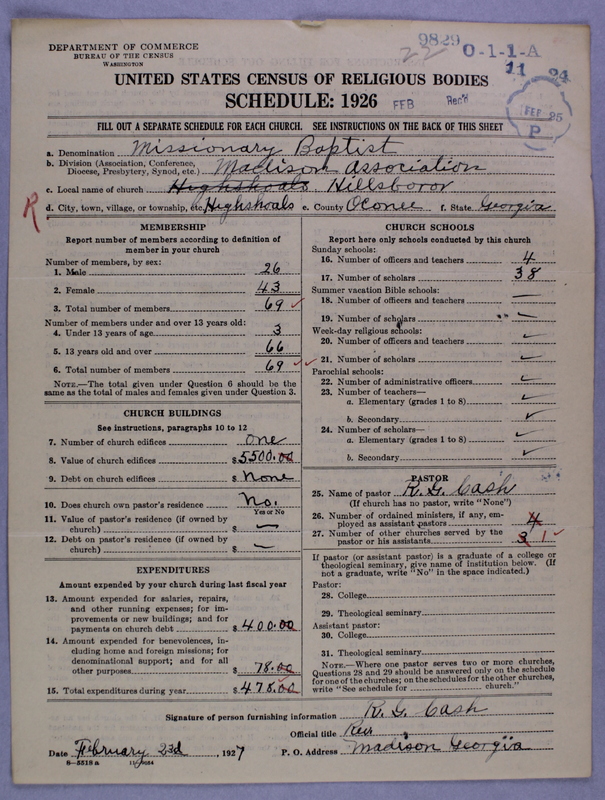 DEPARTMENT OF COMMERCE
BUREAU OF THE CENSUS
WASHINGTON
9829
22
O-1-1-A
11 24
UNITED STATES CENSUS OF RELIGIOUS BODIES
SCHEDULE: 1926
FEB Rec'd
FEB 25
P
FILL OUT A SEPARATE SCHEDULE FOR EACH CHURCH. SEE INSTRUCTIONS ON THE BACK OF THIS SHEET
a. Denomination Missionary Baptist
b. Division (Association, Conference, Diocese, Presbytery, Synod, etc.) Madison Association
c. Local name of church Highshoals Hillsboror
R
d. City, town, village, or township, etc. Highshoals e. County Oconee f. State Georgia
MEMBERSHIP
Report number of members according to definition of
member in your church
Number of members, by sex:
1. Male 26
2. Female 43
3. Total number of members 69 ✓
Number of members under and over 13 years old:
4. Under 13 years of age 3
5. 13 years old and over 66
6. Total number of members 69 ✓✓
NOTE.—The total given under Question 6 should be the
same as the total of males and females given under Question 3.
CHURCH BUILDINGS
See instructions, paragraphs 10 to 12
7. Number of church edifices one
8. Value of church edifices $5500.00
9. Debt on church edifices $ None
10. Does church own pastor's residence No.
Yes or No
11. Value of pastor's residence (if owned by
church) $ —
12. Debt on pastor's residence (if owned by
church) $ —
EXPENDITURES
Amount expended by your church during last fiscal year
13. Amount expended for salaries, repairs,
and other running expenses; for im-
provements or new buildings; and for
payments on church debt $400.00
14. Amount expended for benevolences, in-
cluding home and foreign missions; for
denominational support; and for all
other purposes 78.00
15. Total expenditures during year $478.00
CHURCH SCHOOLS
Report here only schools conducted by this church
Sunday schools:
16. Number of officers and teachers 4
17. Number of scholars 38
Summer vacation Bible schools:
18. Number of officers and teachers —
19. Number of scholars " —
Week-day religious schools:
20. Number of officers and teachers ✓
21. Number of scholars ✓
Parochial schools:
22. Number of administrative officers ✓
23. Number of teachers—
a. Elementary (grades 1 to 8) ✓
b. Secondary ✓
24. Number of scholars—
a. Elementary (grades 1 to 8) ✓
b. Secondary ✓
PASTOR
25. Name of pastor R. G. Cash
(If church has no pastor, write "None")
26. Number of ordained ministers, if any, em-
ployed as assistant pastors 4
27. Number of other churches served by the
pastor or his assistants 3 1 ✓
If pastor (or assistant pastor) is a graduate of a college or
theological seminary, give name of institution below. (If
not a graduate, write "No" in the space indicated.)
Pastor:
28. College
29. Theological seminary
Assistant pastor:
30. College
31. Theological seminary
NOTE.—Where one pastor serves two or more churches,
Questions 28 and 29 should be answered only on the schedule
for one of the churches; on the schedules for the other churches,
write "See schedule for church."
Signature of person furnishing information R. G. Cash
Official title Rev
Date February 23d, 1927 P. O. Address Madison Georgia
8—5518 a